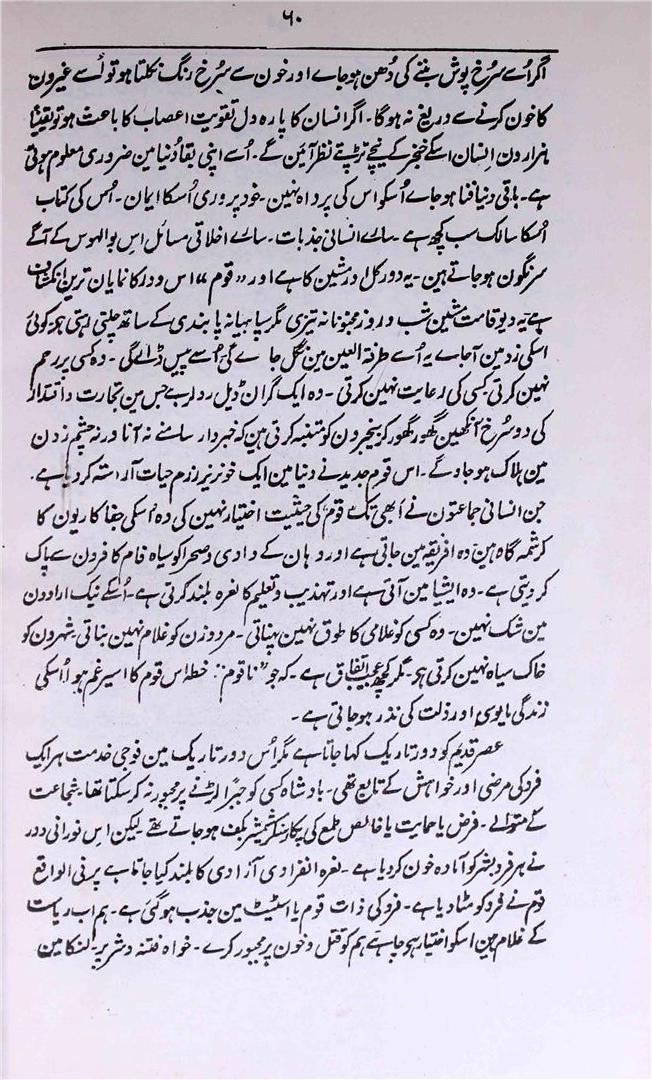 ۶۰
اگر اُسے سُرخ پوش بننے کی دُھن ہو جاے اور خون سے سُرخ رنگ نکلتا ہو تو اُسے غیرون
کا خون کرنے سے دریغ نہ ہوگا۔ اگر انسان کا پارہ دل تقویت اعصاب کا باعث ہو تو یقیناً
ہزارون انسان اسکے خنجر کے نیچے تڑپتے نظر آئین گے۔ اُسے اپنی بقا دُنیا مین ضروری معلوم ہوتی
ہے۔ باقی دنیا فنا ہو جاے اُسکو اس کی پرواہ نہین۔ خود پروری اُسکا ایمان۔ اُس کی کتاب
اُسکا سالک سب کچھ ہے۔ سارے انسانی جذبات۔ سارے اخلاقی مسائل اس بوالہوس کے آگے
سرنگون ہو جاتے ہین۔ یہ دور کل اور مشین کا ہے اور ”قوم“ اس دور کا نمایان ترین انکشاف
ہے یہ دیو قامت مشین شب و روز مجنونانہ تیزی مگر سپاہیانہ پابندی کے ساتھ چلتی رہتی ہے۔ کوئی
اسکی زد مین آجاے یہ اُسے طرفۃ العین مین نگل جاے گی اُسے پیس ڈالے گی۔ وہ کسی پر رحم
نہین کرتی کسی کی رعایت نہین کرتی۔ وہ ایک گران ڈیل رولر ہے جس مین تجارت و اقتدار
کی دو سُرخ آنکھین گھور گھور کر بیخبرون کو متنبہ کرتی ہین کہ خبردار سامنے نہ آنا ورنہ چشم زدن
مین ہلاک ہو جاوگے۔ اس قوم جدید نے دنیا مین ایک خونریز رزم حیات آراستہ کر دیا ہے۔
جن انسانی جماعتون نے اُبھی تک قوم کی حیثیت اختیار نہین کی وہ اُسکی جفا کاریون کا
کرشمہ گاہ ہین وہ افریقہ مین جاتی ہے اور وہان کے وادی و صحرا کو سیاہ فام کافرون سے پاک
کر دیتی ہے۔ وہ ایشیا مین آتی ہے اور تہذیب و تعلیم کا نعرہ بلند کرتی ہے۔ اُسکے نیک ارادون
مین شک نہین۔ وہ کسی کو غلامی کا طوق نہین پہناتی۔ مرد و زن کو غلام نہین بناتی۔ شہرون کو
خاک سیاہ نہین کرتی ہے۔ مگر کچھ عجیب اتفاق ہے۔ کہ جو ”ناقوم“ خطہ اس قوم کا اسیر غم ہوا اُسکی
زندگی مایوسی اور ذلت کی نذر ہو جاتی ہے۔
عصر قدیم کو دور تاریک کہا جاتا ہے مگر اُس دور تاریک مین فوجی خدمت ہر ایک
فرد کی مرضی اور خواہش کے تابع تھی۔ بادشاہ کسی کو جبراً لڑنے پر مجبور نہ کر سکتا تھا۔ شجاعت
کے متوالے۔ فرض یا حمایت یا خالص طمع کی پکار سنکر شمشیر بکف ہو جاتے تھے۔ لیکن اِس نورانی دور
نے ہر فرد بشر کو آمادہ خون کر دیا ہے۔ نعرہ انفرادی آزادی کا بلند کیا جاتا ہے پر فی الواقع
قوم نے فرد کو مٹا دیا ہے۔ فرد کی ذات قوم یا اسٹیٹ مین جذب ہو گئی ہے۔ ہم اب ریاست
کے غلام ہین اسکو اختیار ہے چاہے ہم کو قتل و خون پر مجبور کرے۔ خواہ فتنہ و شر پر۔ لنکا مین